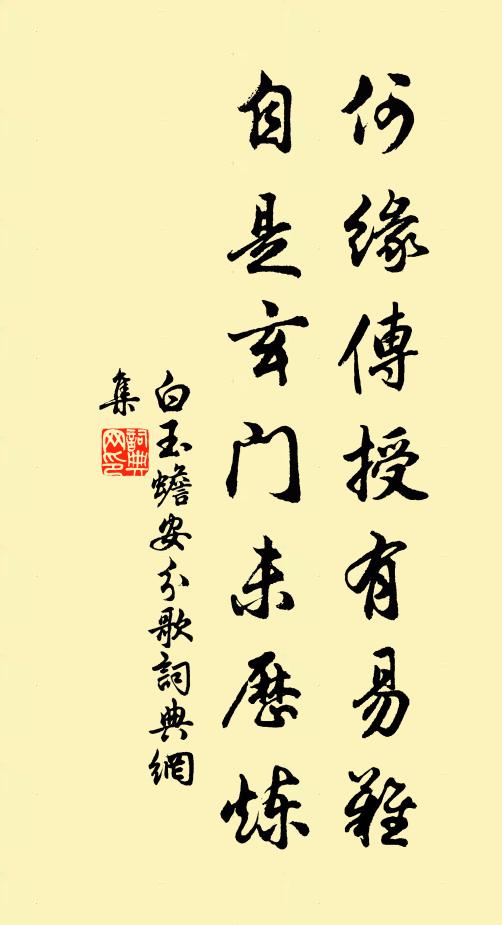 何緣傳授有易難
自是玄門未歷煉
白玉蟾安分歌詞典網
集
詞典
网印